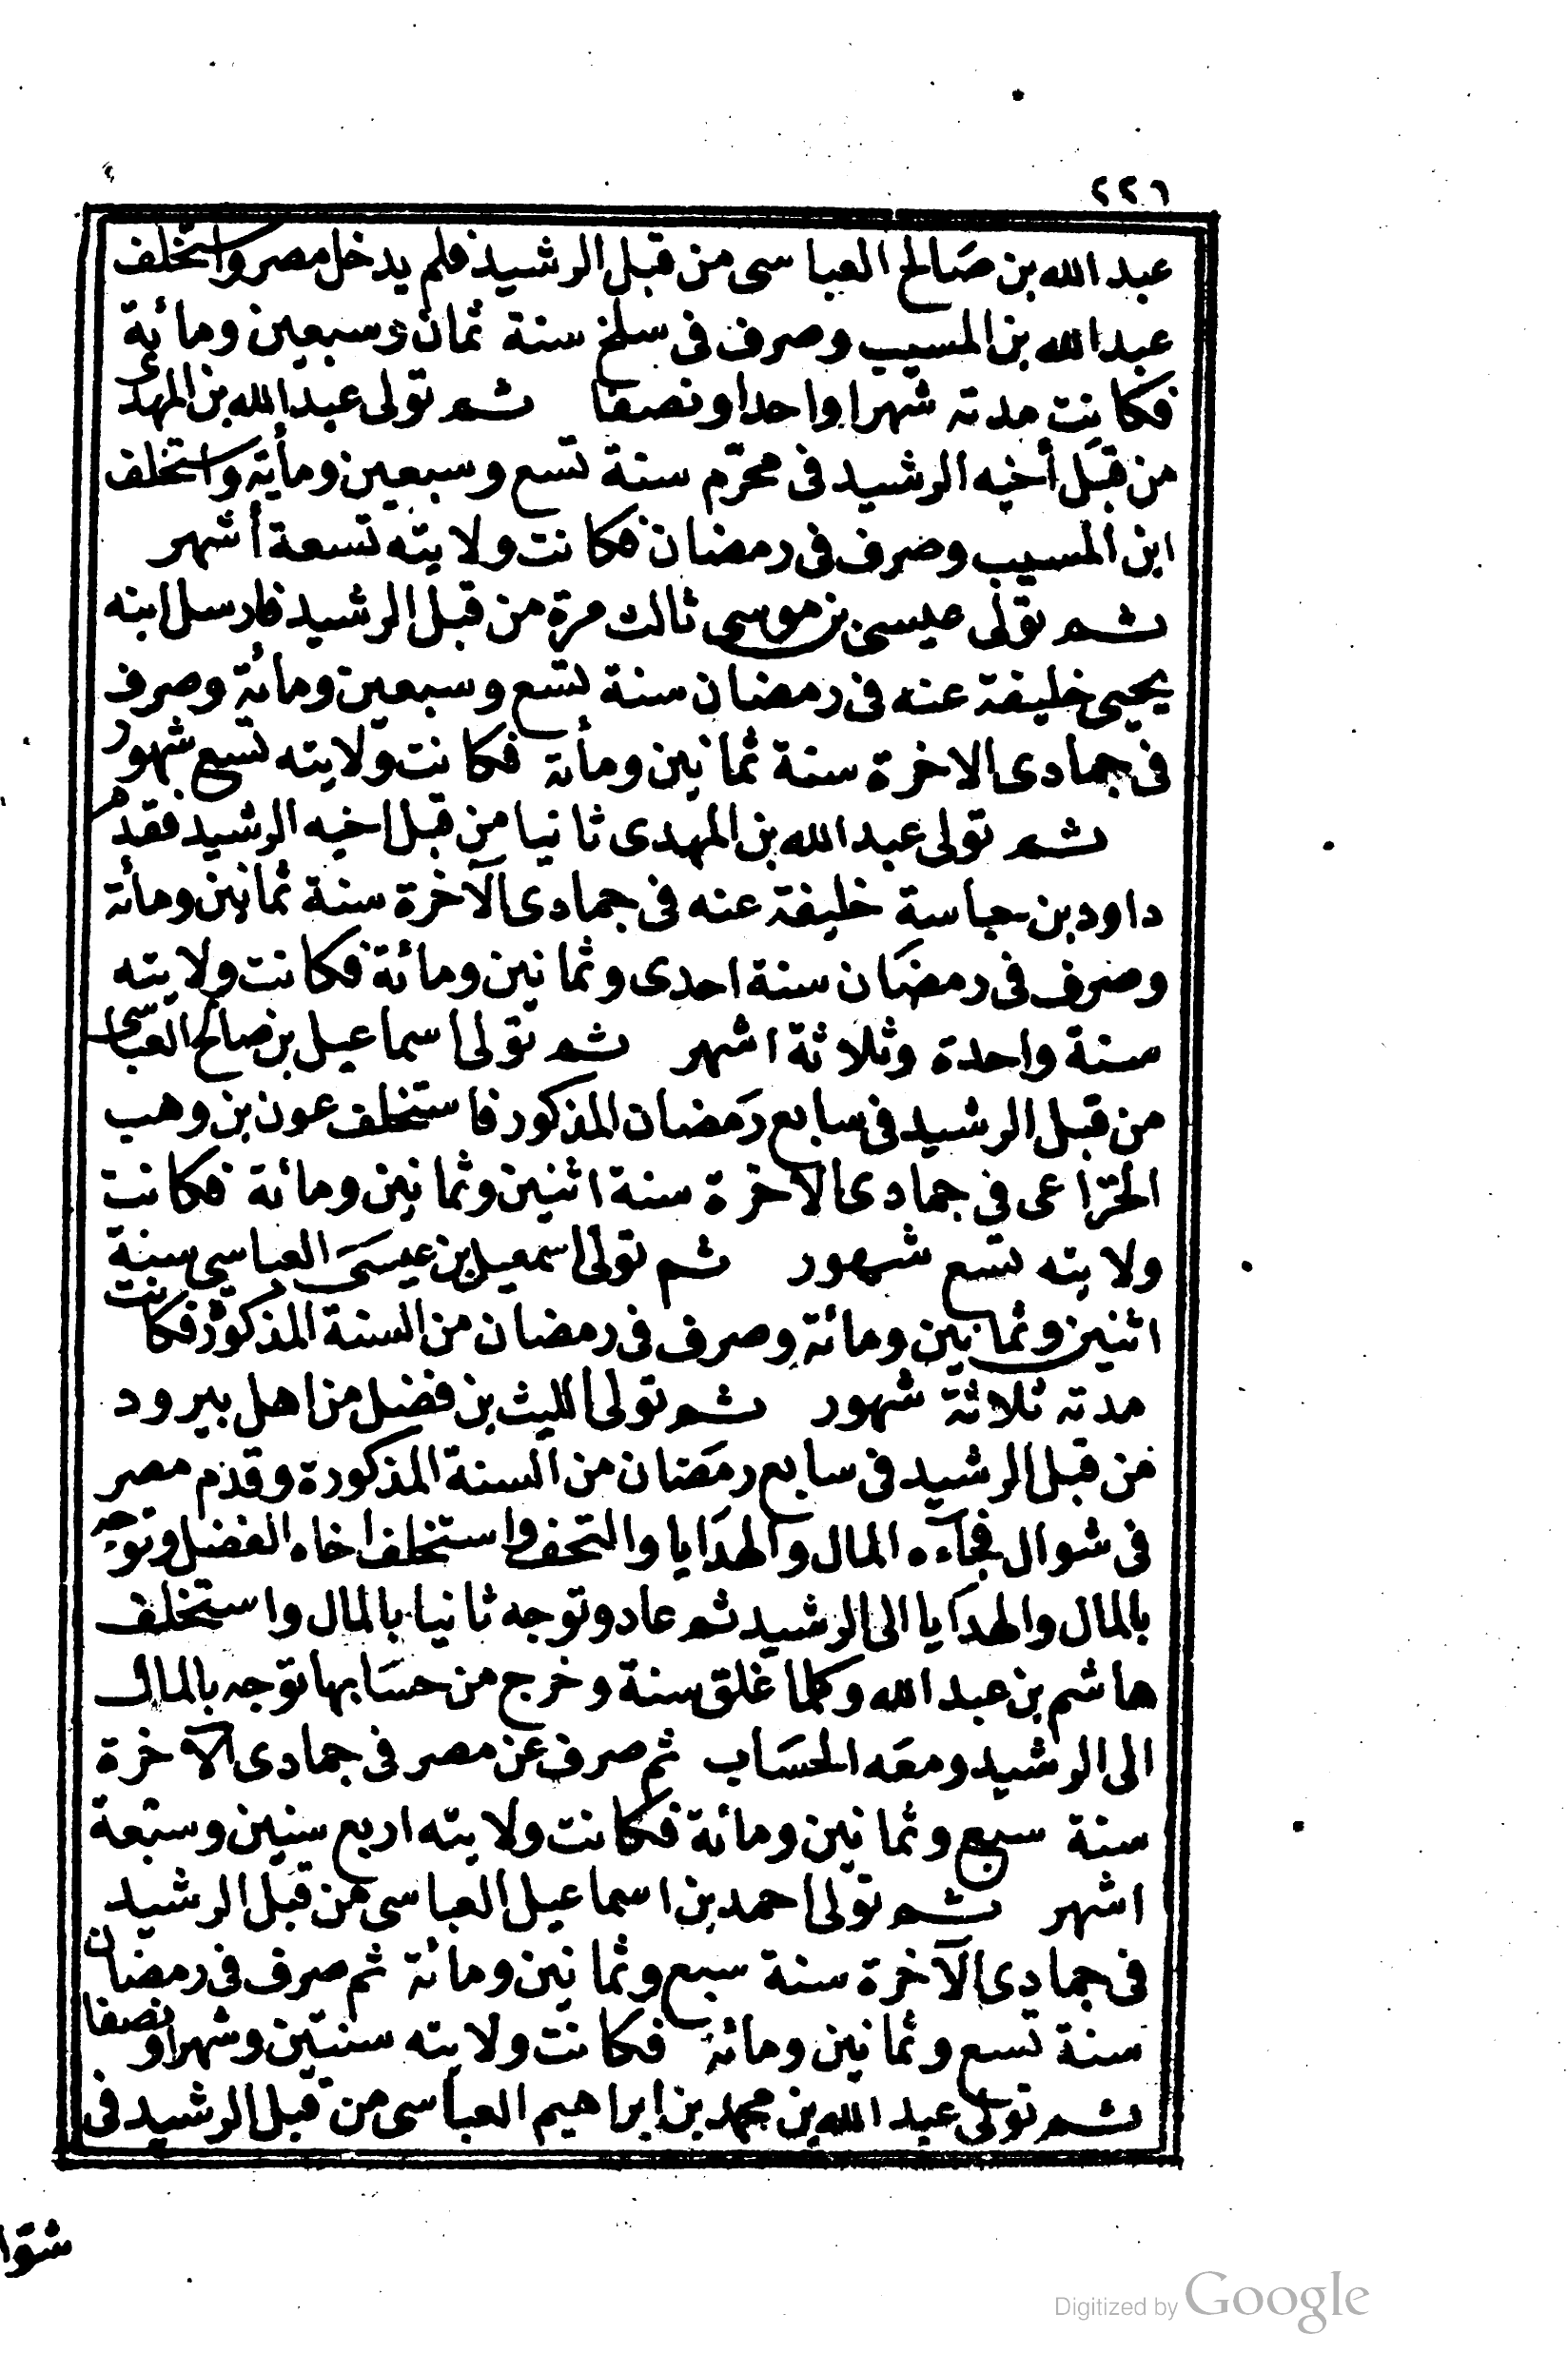 ٢٢٦
عبد الله بن صَالح العباسى من قبل الرشيد فلم يدخل مصر واستخلف
عبد الله بن المسيب وصرف فى سلخ سنة ثمان وسبعين ومائة
فكانت مدته شهرا واحدا ونصفا ثم تولى عبد الله بن المهدى
من قبل أخيه الرشيد فى محرّم سنة تسع وسبعين ومأية واستخلف
ابن المسيب وصرف فى رمضان فكانت ولايته تسعة أشهر
ثم تولى عيسى بن موسى ثالث مرة من قبل الرشيد فارسل ابنه
يحيى خليفة عنه فى رمضان سنة تسع وسبعين ومائة وصرف
فى جمادى الاخرة سنة ثمانين ومأة فكانت ولايته تسع شهور
ثم تولى عبد الله بن المهدى ثانيا من قبل اخيه الرشيد فقدم
داود بن حباسة خليفة عنه فى جمادى الآخرة سنة ثمانين ومائة
وصرف فى رمضَان سنة احدى وثمانين ومائة فكانت ولايته
سنة واحدة وثلاثة اشهر ثم تولى اسماعيل بن صالح العباسى
من قبل الرشيد فى سابع رَمضان المذكور فاستخلف عون بن وهب
الخزاعى فى جمادى الاخرة سنة اثنين وثمانين ومائة فكانت
ولايته تسع شهور ثم تولى اسمعيل بن عيسَى العباسي سنة
اثنين وثمانين ومائة وصرف فى رمضان من السنة المذكورة فكانت
مدته ثلاثة شهور ثم تولى الليث بن فضل من اهل بيرود
من قبل الرشيد فى سابع رمَضان من السنة المذكورة وقدم مصر
فى شوال فجآءه المال والهدَايا والتحف واستخلف اخاه الفضل وتوجه
بالمال والهدَايا الى الرشيد ثم عاد وتوجه ثانيا بالمال واستخلف
هاشم بن عبد الله وكلما غلق سنة وخرج من حسَابها توجه بالمال
الى الرشيد ومعَه الحسَاب ثم صرف عن مصر فى جمادى الآخرة
سنة سبع وثمانين ومائة فكانت ولايته اربع سنين وسبعة
اشهر ثم تولى احمد بن اسماعيل العباسى من قبل الرشيد
فى جمادى الآخرة سنة سبع وثمانين ومائة ثم صرف فى رمضان
سنة تسع وثمانين ومائة فكانت ولايته سنتين وشهرا ونصفا
ثم تولى عبد الله بن محمد بن ابراهيم العباسى من قبل الرشيد فى
شوا
Digitized by Google